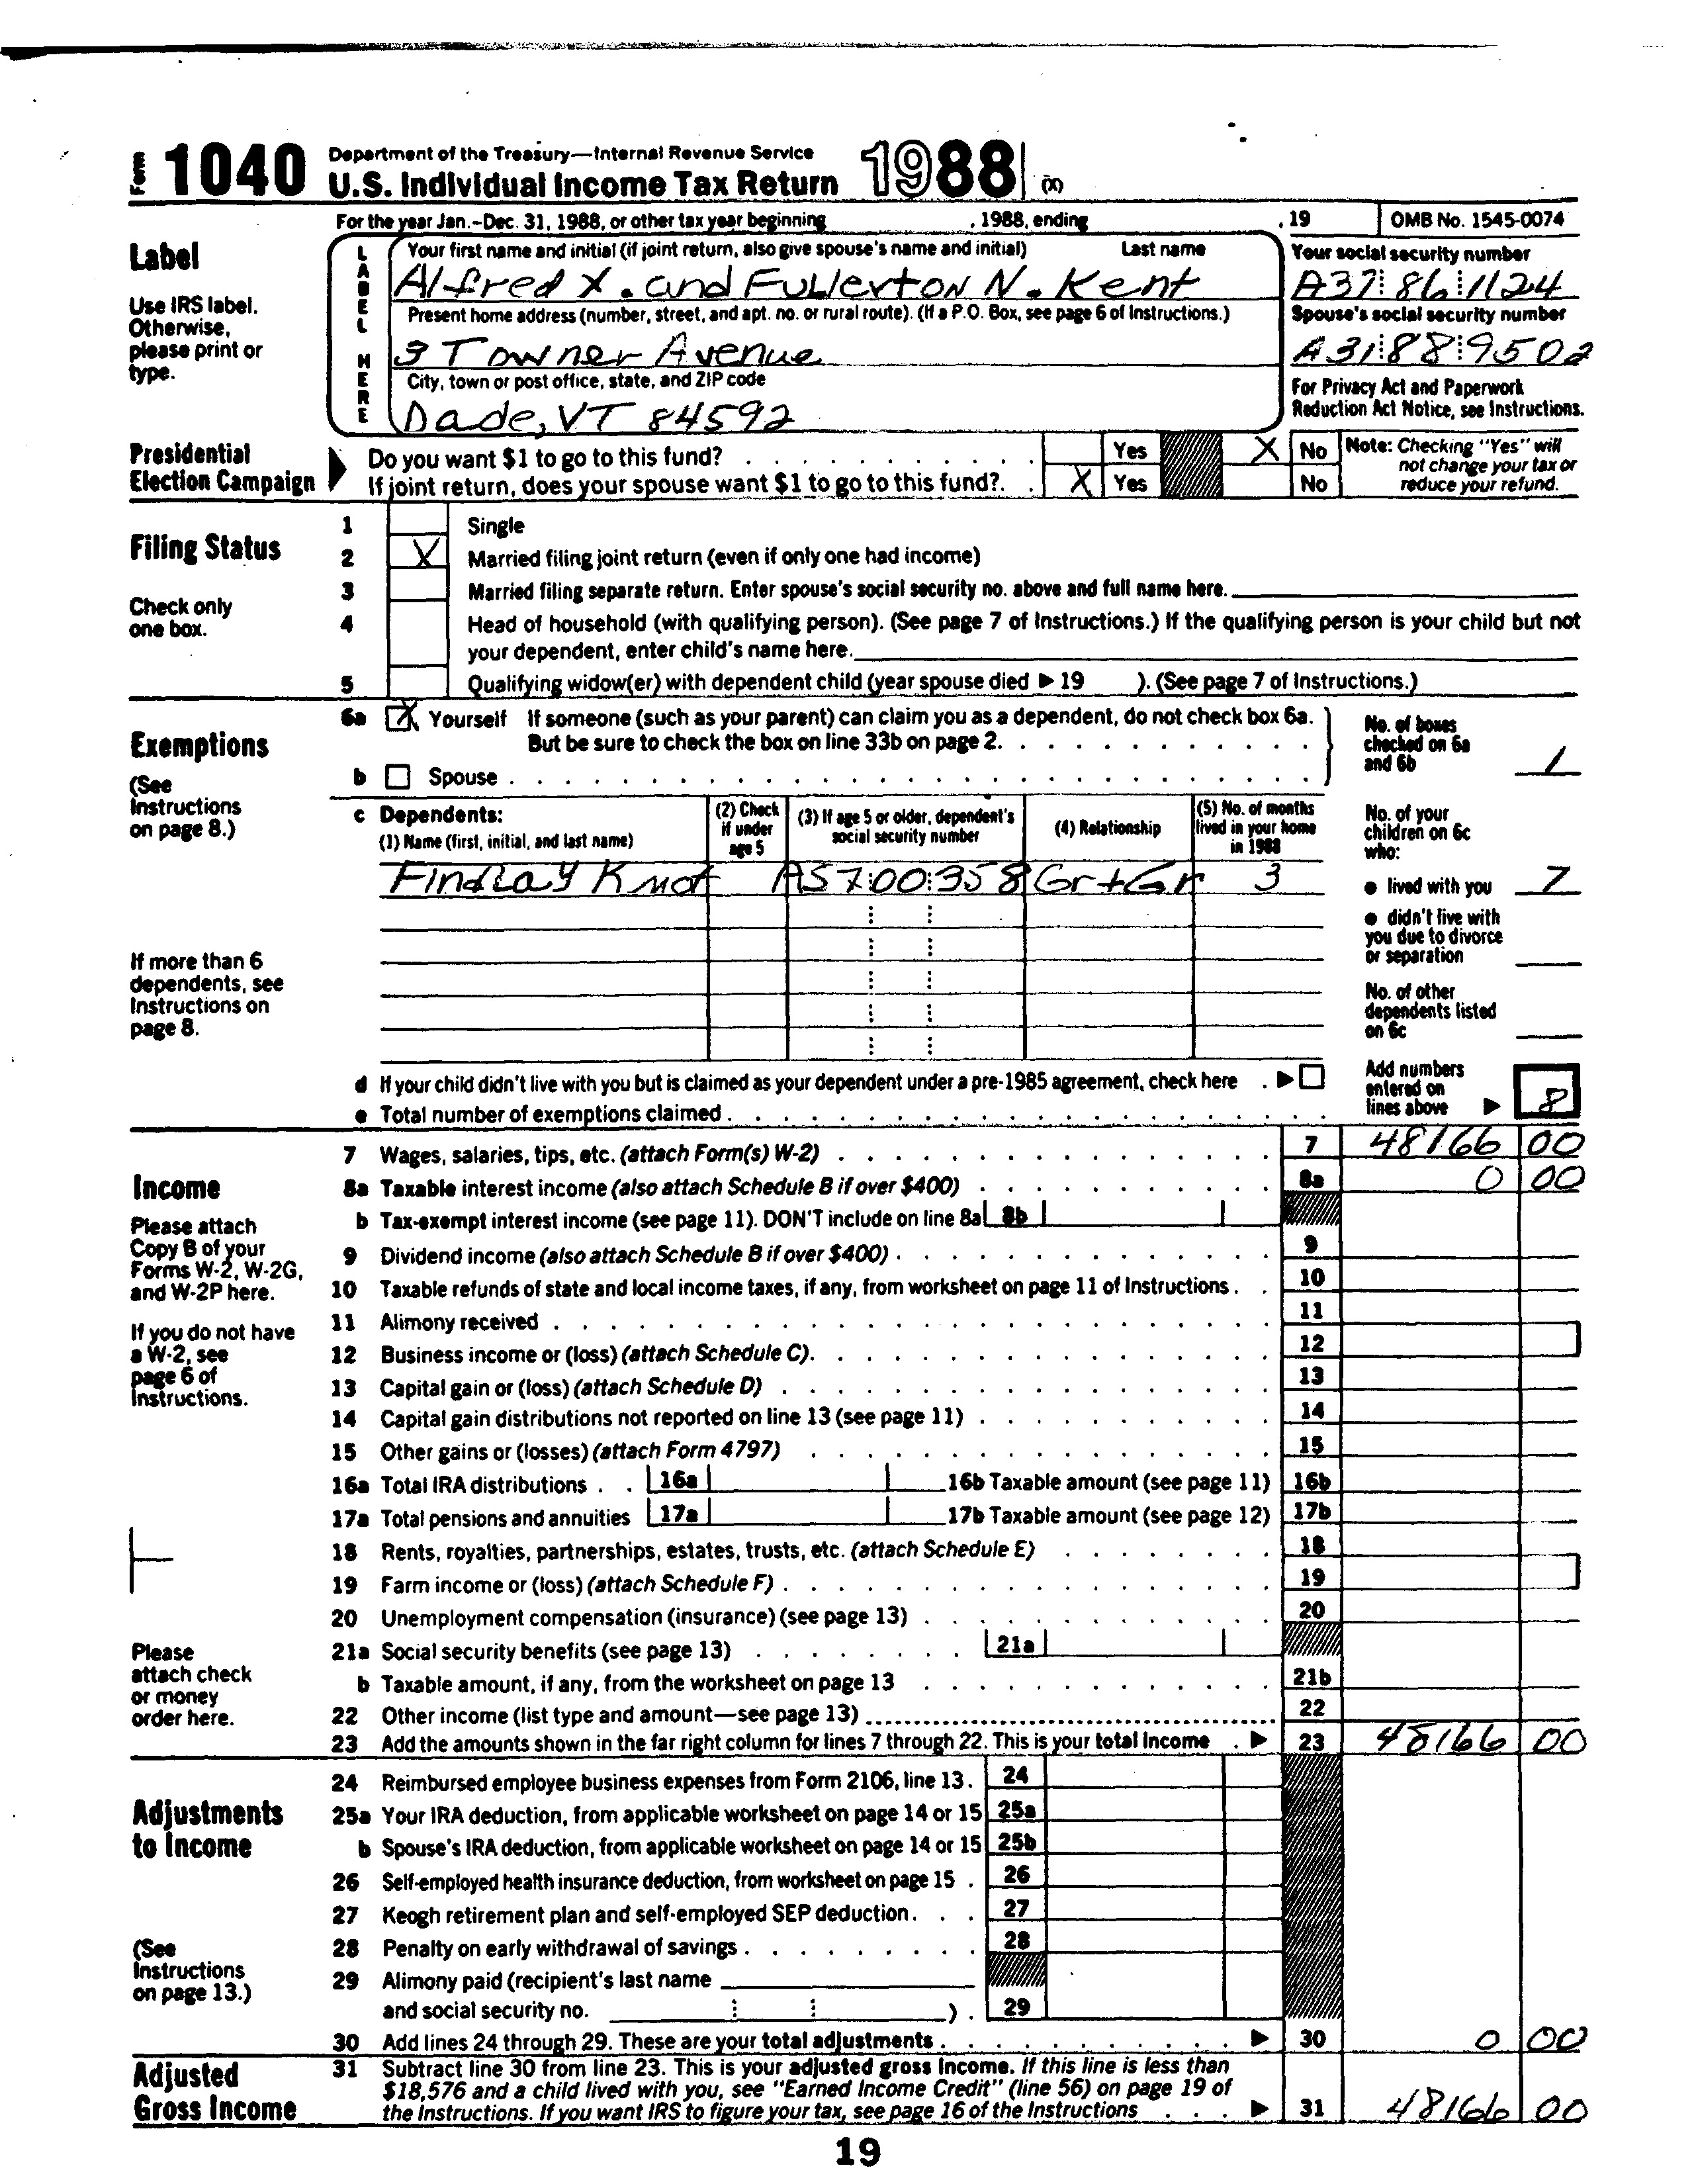 Form 1040 Department of the Treasury—Internal Revenue Service
U.S. Individual Income Tax Return 1988 (X)
For the year Jan.–Dec. 31, 1988, or other tax year beginning , 1988, ending , 19 OMB No. 1545-0074
Label
Use IRS label. Otherwise, please print or type.
LABEL HERE
Your first name and initial (if joint return, also give spouse's name and initial) Last name
Alfred X. and Fullerton N. Kent
Your social security number
A37 86 1124
Present home address (number, street, and apt. no. or rural route). (If a P.O. Box, see page 6 of Instructions.)
3 Towner Avenue
Spouse's social security number
A31 88 9502
City, town or post office, state, and ZIP code
Dade, VT 84592
For Privacy Act and Paperwork
Reduction Act Notice, see Instructions.
Presidential
Election Campaign
Do you want $1 to go to this fund? Yes X No
If joint return, does your spouse want $1 to go to this fund? X Yes No
Note: Checking "Yes" will
not change your tax or
reduce your refund.
Filing Status
Check only
one box.
1 Single
2 X Married filing joint return (even if only one had income)
3 Married filing separate return. Enter spouse's social security no. above and full name here.
4 Head of household (with qualifying person). (See page 7 of Instructions.) If the qualifying person is your child but not
your dependent, enter child's name here.
5 Qualifying widow(er) with dependent child (year spouse died ▶ 19 ). (See page 7 of Instructions.)
Exemptions
(See
Instructions
on page 8.)
6a X Yourself If someone (such as your parent) can claim you as a dependent, do not check box 6a.
But be sure to check the box on line 33b on page 2.
b Spouse
No. of boxes
checked on 6a
and 6b 1
c Dependents:
(1) Name (first, initial, and last name)
(2) Check
if under
age 5
(3) If age 5 or older, dependent's
social security number
(4) Relationship
(5) No. of months
lived in your home
in 1988
Findlay Knot A57 00 358 Gr+Gr 3
No. of your
children on 6c
who:
● lived with you 7
● didn't live with
you due to divorce
or separation
No. of other
dependents listed
on 6c
If more than 6
dependents, see
Instructions on
page 8.
d If your child didn't live with you but is claimed as your dependent under a pre-1985 agreement, check here ▶
e Total number of exemptions claimed
Add numbers
entered on
lines above ▶ 8
Income
Please attach
Copy B of your
Forms W-2, W-2G,
and W-2P here.
If you do not have
a W-2, see
page 6 of
Instructions.
7 Wages, salaries, tips, etc. (attach Form(s) W-2) 7 48166 00
8a Taxable interest income (also attach Schedule B if over $400) 8a 0 00
b Tax-exempt interest income (see page 11). DON'T include on line 8a 8b
9 Dividend income (also attach Schedule B if over $400) 9
10 Taxable refunds of state and local income taxes, if any, from worksheet on page 11 of Instructions 10
11 Alimony received 11
12 Business income or (loss) (attach Schedule C) 12
13 Capital gain or (loss) (attach Schedule D) 13
14 Capital gain distributions not reported on line 13 (see page 11) 14
15 Other gains or (losses) (attach Form 4797) 15
16a Total IRA distributions 16a 16b Taxable amount (see page 11) 16b
17a Total pensions and annuities 17a 17b Taxable amount (see page 12) 17b
18 Rents, royalties, partnerships, estates, trusts, etc. (attach Schedule E) 18
19 Farm income or (loss) (attach Schedule F) 19
20 Unemployment compensation (insurance) (see page 13) 20
21a Social security benefits (see page 13) 21a
b Taxable amount, if any, from the worksheet on page 13 21b
22 Other income (list type and amount—see page 13) 22
23 Add the amounts shown in the far right column for lines 7 through 22. This is your total income ▶ 23 48166 00
Please
attach check
or money
order here.
Adjustments
to Income
(See
Instructions
on page 13.)
24 Reimbursed employee business expenses from Form 2106, line 13. 24
25a Your IRA deduction, from applicable worksheet on page 14 or 15 25a
b Spouse's IRA deduction, from applicable worksheet on page 14 or 15 25b
26 Self-employed health insurance deduction, from worksheet on page 15 26
27 Keogh retirement plan and self-employed SEP deduction 27
28 Penalty on early withdrawal of savings 28
29 Alimony paid (recipient's last name
and social security no. ) 29
30 Add lines 24 through 29. These are your total adjustments ▶ 30 0 00
Adjusted
Gross Income
31 Subtract line 30 from line 23. This is your adjusted gross income. If this line is less than
$18,576 and a child lived with you, see "Earned Income Credit" (line 56) on page 19 of
the Instructions. If you want IRS to figure your tax, see page 16 of the Instructions ▶ 31 48166 00
19